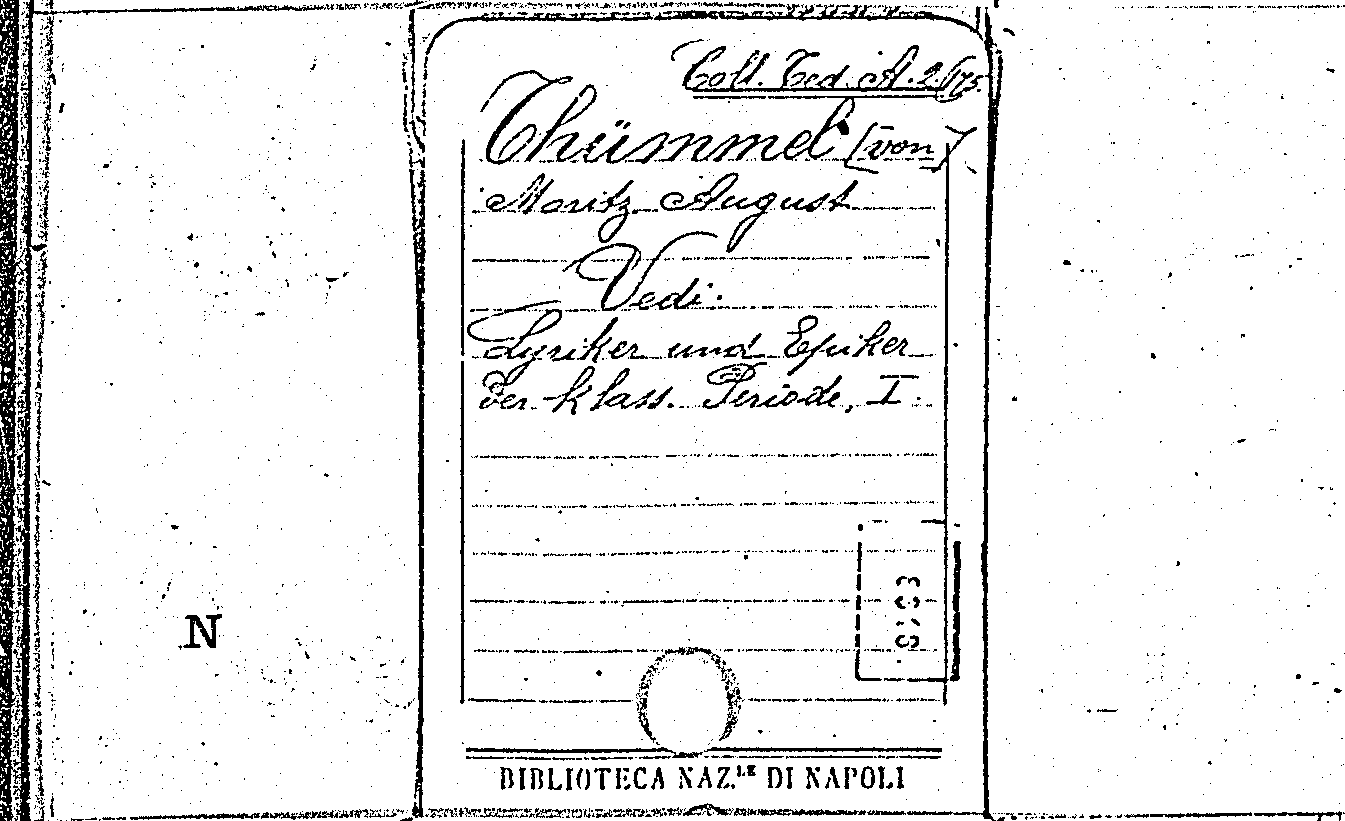 Coll. Ted. A. 2 (175
Thümmel (von)
Moritz August
Vedi:
Lyriker und Epiker
der klass. Periode, I.
N
BIBLIOTECA NAZ.LE DI NAPOLI